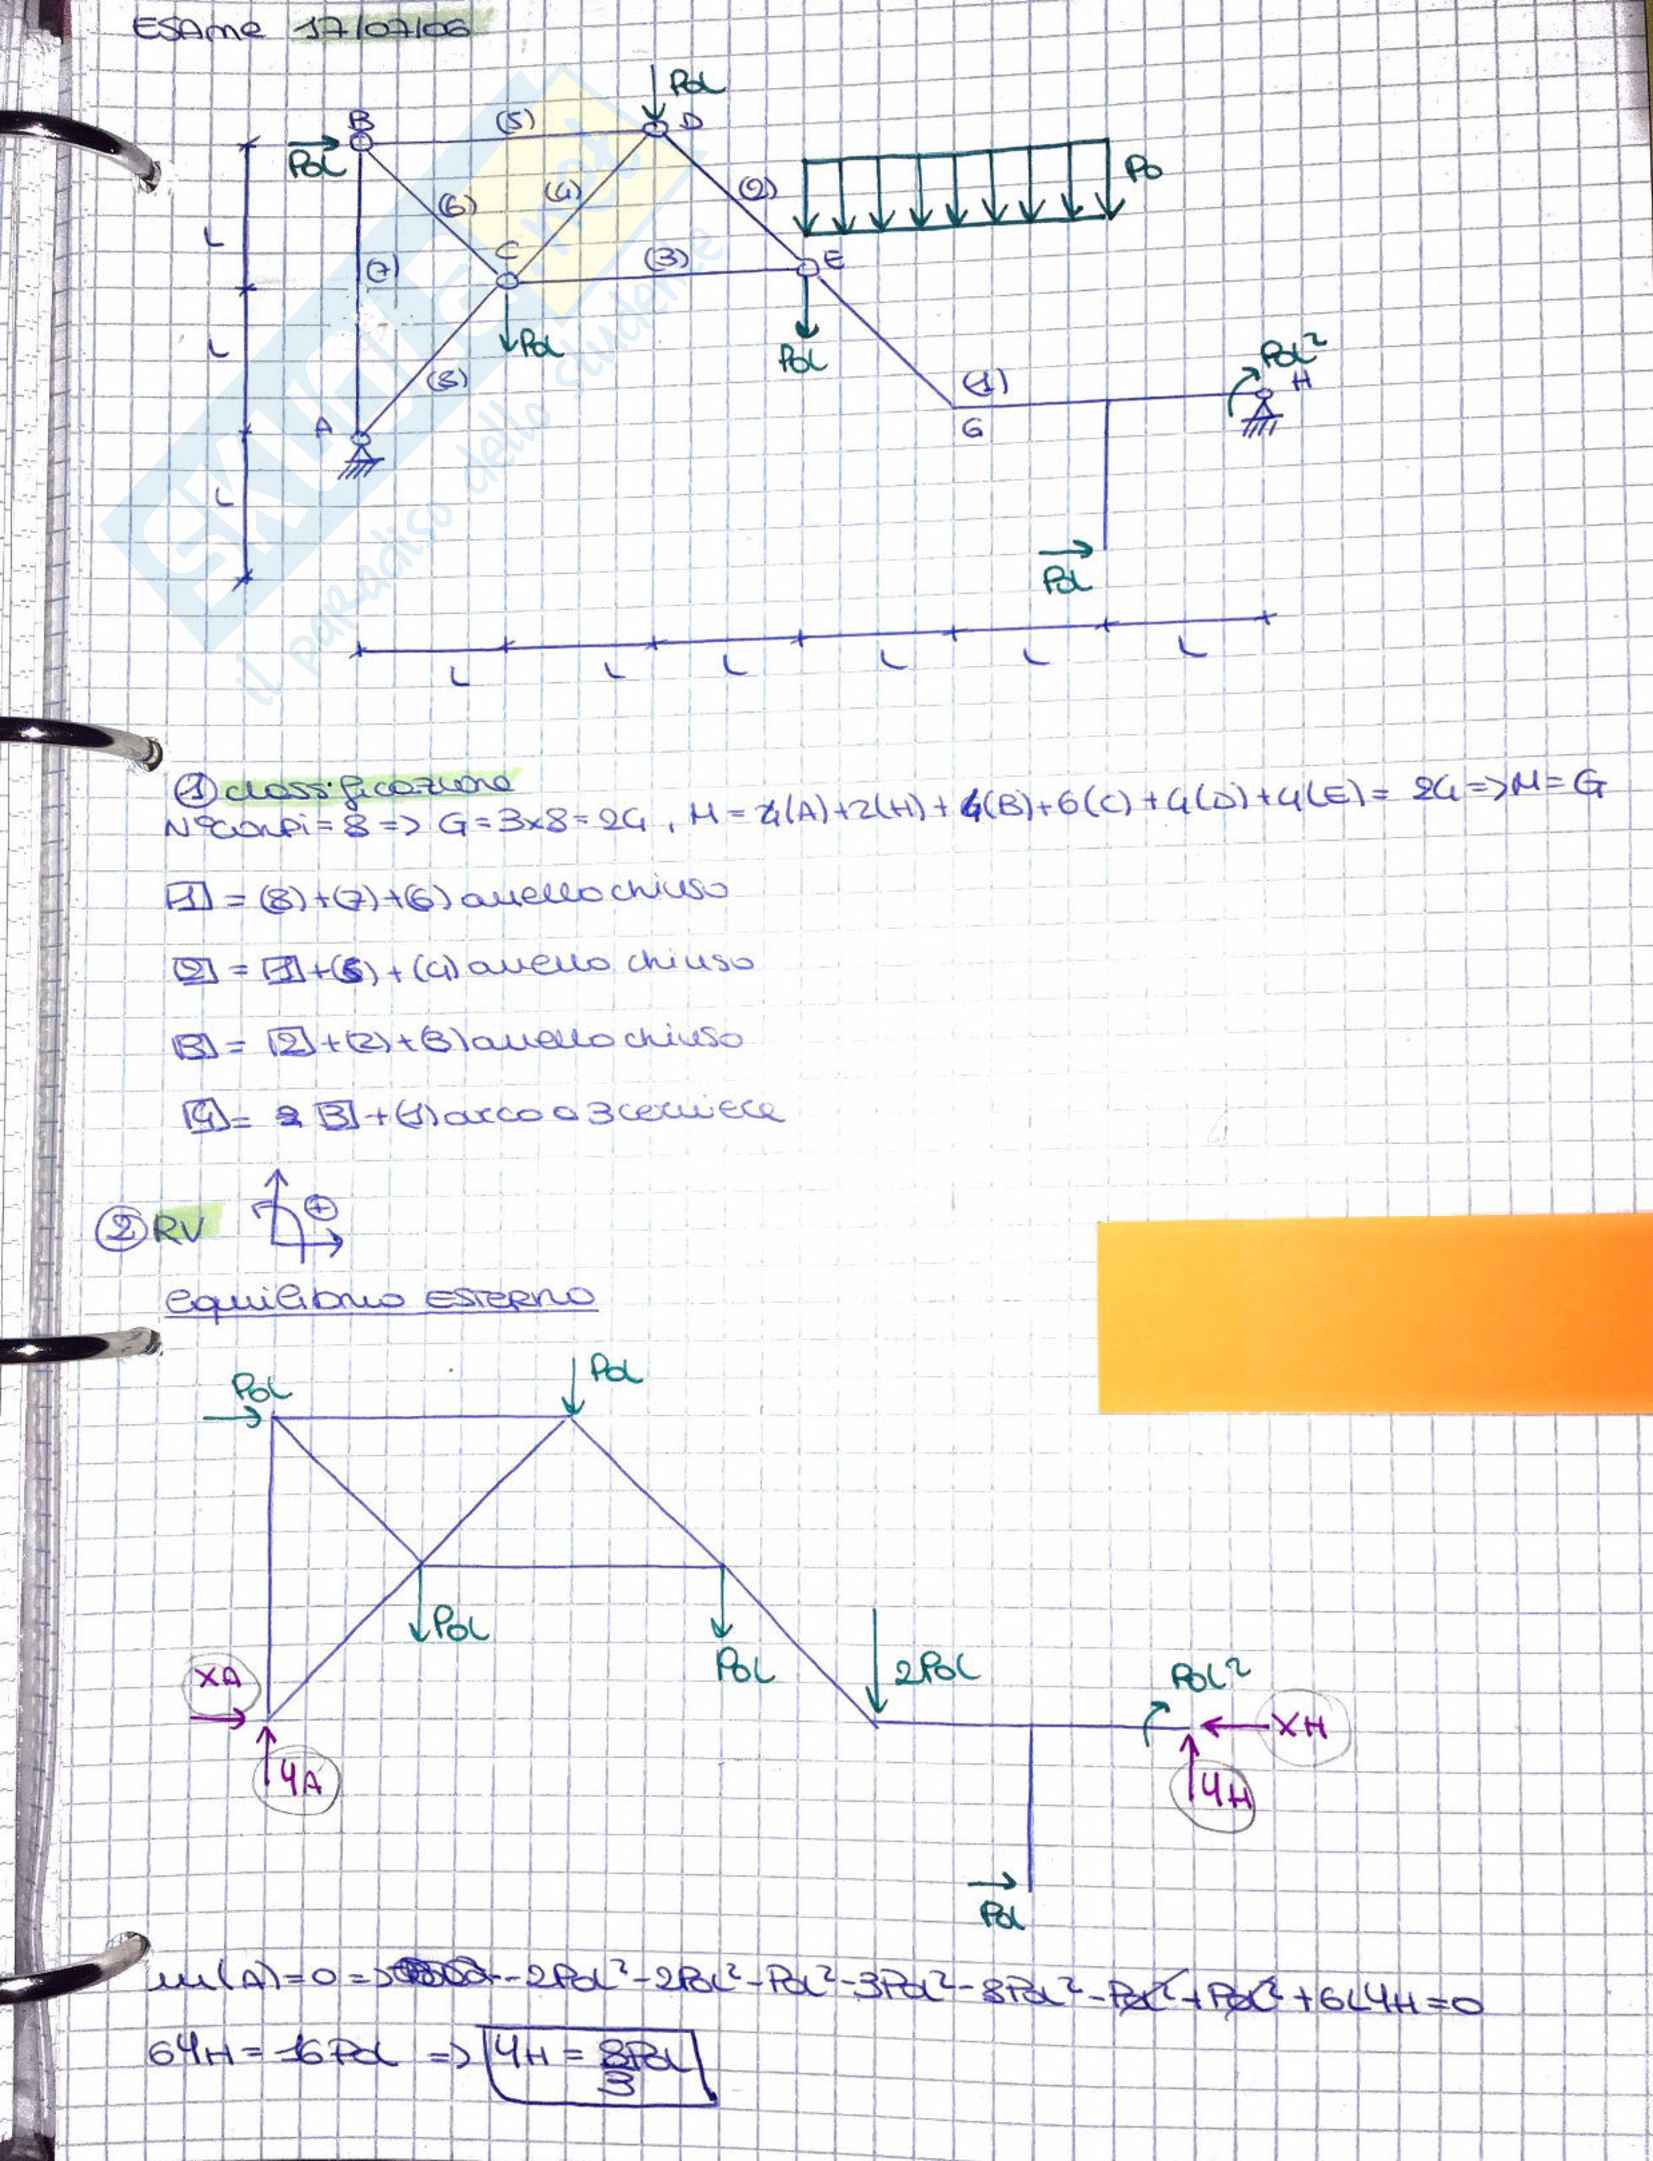 ESAME 17/07/06
P₀L
B
(5)
D
P₀L
P₀
L
(6)
(4)
(2)
(7)
C
(3)
E
L
P₀L
P₀L
P₀L²
(8)
(1)
H
A
G
L
P₀L
L L L L L L
SKUOLA.net
il paradiso dello studente
① classificazione
N°corpi = 8 => G = 3x8 = 24, M = 4(A)+2(H)+4(B)+6(C)+4(D)+4(E) = 24 => M = G
[1] = (8)+(7)+(6) anello chiuso
[2] = [1]+(5)+(4) anello chiuso
[3] = [2]+(2)+(3) anello chiuso
[4] = [3]+(1) arco a 3 cerniere
② RV +
equilibrio ESTERNO
P₀L
P₀L
P₀L
P₀L
2P₀L
P₀L²
XA
XH
YA
YH
P₀L
m(A)=0 => -2P₀L²-2P₀L²-P₀L²-3P₀L²-8P₀L²-P₀L²+P₀L²+6LYH=0
6YH = 16P₀L => YH = 8P₀L/3